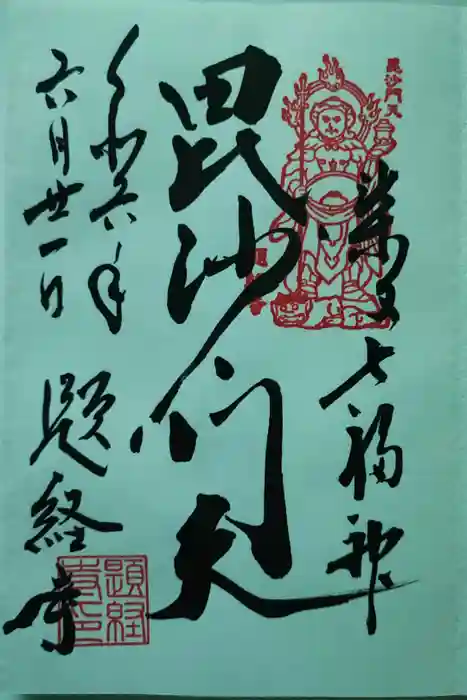 毘沙門天
柴又七福神
毘沙門天
令和六年
六月廿一日
題経寺
題経寺印